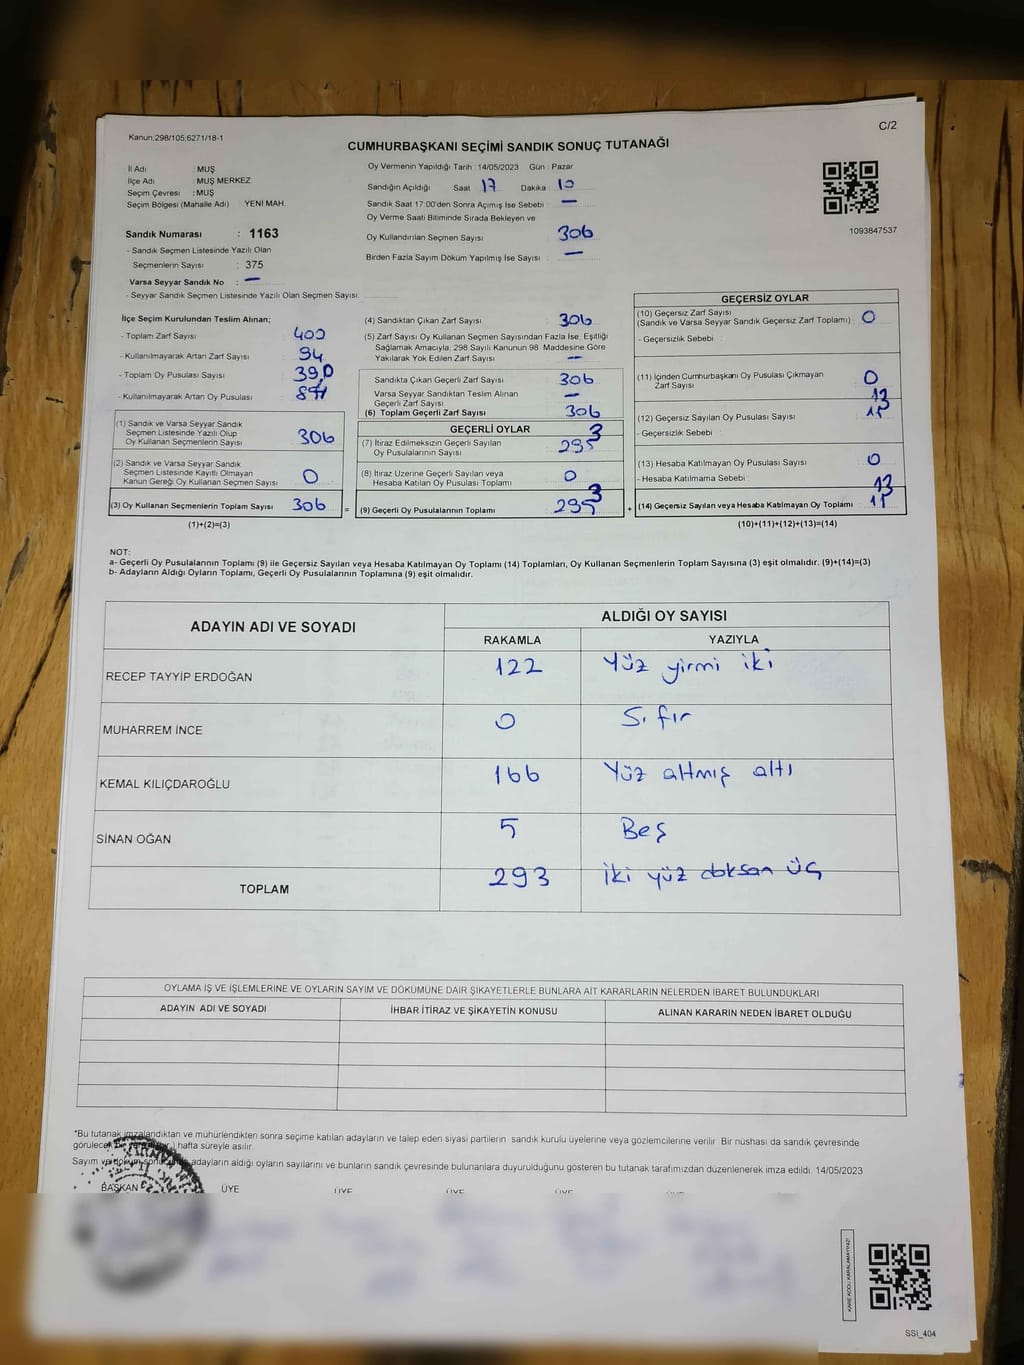 Kanun;298/105;6271/18-1
C/2
CUMHURBAŞKANI SEÇİMİ SANDIK SONUÇ TUTANAĞI
İl Adı : MUŞ
İlçe Adı MUŞ MERKEZ
Seçim Çevresi : MUŞ
Seçim Bölgesi (Mahalle Adı) YENİ MAH.
Oy Vermenin Yapıldığı Tarih : 14/05/2023 Gün : Pazar
Sandığın Açıldığı Saat 17 Dakika 10
Sandık Saat 17:00'den Sonra Açımış İse Sebebi : —
Oy Verme Saati Bitiminde Sırada Bekleyen ve
Oy Kullandırılan Seçmen Sayısı 306
Birden Fazla Sayım Döküm Yapılmış İse Sayısı : —
1093847537
Sandık Numarası : 1163
- Sandık Seçmen Listesinde Yazılı Olan
Seçmenlerin Sayısı : 375
Varsa Seyyar Sandık No : —
- Seyyar Sandık Seçmen Listesinde Yazılı Olan Seçmen Sayısı:
İlçe Seçim Kurulundan Teslim Alınan;
- Toplam Zarf Sayısı 400
- Kullanılmayarak Artan Zarf Sayısı 94
- Toplam Oy Pusulası Sayısı
- Kullanılmayarak Artan Oy Pusulası
(1) Sandık ve Varsa Seyyar Sandık
Seçmen Listesinde Yazılı Olup
Oy Kullanan Seçmenlerin Sayısı 306
(2) Sandık ve Varsa Seyyar Sandık
Seçmen Listesinde Kayıtlı Olmayan
Kanun Gereği Oy Kullanan Seçmen Sayısı 0
(3) Oy Kullanan Seçmenlerin Toplam Sayısı 306 =
(1)+(2)=(3)
(4) Sandıktan Çıkan Zarf Sayısı 306
(5) Zarf Sayısı Oy Kullanan Seçmen Sayısından Fazla İse, Eşitliği
Sağlamak Amacıyla, 298 Sayılı Kanunun 98. Maddesine Göre
Yakılarak Yok Edilen Zarf Sayısı —
Sandıkta Çıkan Geçerli Zarf Sayısı 306
Varsa Seyyar Sandıktan Teslim Alınan
Geçerli Zarf Sayısı —
(6) Toplam Geçerli Zarf Sayısı 306
GEÇERLİ OYLAR
(7) İtiraz Edilmeksizin Geçerli Sayılan
Oy Pusulalarının Sayısı 293
(8) İtiraz Üzerine Geçerli Sayılan veya
Hesaba Katılan Oy Pusulası Toplamı 0
(9) Geçerli Oy Pusulalarının Toplamı 293 +
GEÇERSİZ OYLAR
(10) Geçersiz Zarf Sayısı
(Sandık ve Varsa Seyyar Sandık Geçersiz Zarf Toplamı) : 0
- Geçersizlik Sebebi :
(11) İçinden Cumhurbaşkanı Oy Pusulası Çıkmayan
Zarf Sayısı 0
(12) Geçersiz Sayılan Oy Pusulası Sayısı 13
- Geçersizlik Sebebi :
(13) Hesaba Katılmayan Oy Pusulası Sayısı 0
- Hesaba Katılmama Sebebi :
(14) Geçersiz Sayılan veya Hesaba Katılmayan Oy Toplamı 13
(10)+(11)+(12)+(13)=(14)
NOT:
a- Geçerli Oy Pusulalarının Toplamı (9) ile Geçersiz Sayılan veya Hesaba Katılmayan Oy Toplamı (14) Toplamları, Oy Kullanan Seçmenlerin Toplam Sayısına (3) eşit olmalıdır. (9)+(14)=(3)
b- Adayların Aldığı Oyların Toplamı, Geçerli Oy Pusulalarının Toplamına (9) eşit olmalıdır.
ADAYIN ADI VE SOYADI ALDIĞI OY SAYISI
RAKAMLA YAZIYLA
RECEP TAYYİP ERDOĞAN 122 Yüz yirmi iki
MUHARREM İNCE 0 Sıfır
KEMAL KILIÇDAROĞLU 166 Yüz altmış altı
SİNAN OĞAN 5 Beş
TOPLAM 293 iki yüz doksan üç
OYLAMA İŞ VE İŞLEMLERİNE VE OYLARIN SAYIM VE DÖKÜMÜNE DAİR ŞİKAYETLERLE BUNLARA AİT KARARLARIN NELERDEN İBARET BULUNDUKLARI
ADAYIN ADI VE SOYADI İHBAR İTİRAZ VE ŞİKAYETİN KONUSU ALINAN KARARIN NEDEN İBARET OLDUĞU
*Bu tutanak imzalandıktan ve mühürlendikten sonra seçime katılan adayların ve talep eden siyasi partilerin sandık kurulu üyelerine veya gözlemcilerine verilir. Bir nüshası da sandık çevresinde
görülecek bir hafta süreyle asılır.
Sayım ve döküm adayların aldığı oyların sayılarını ve bunların sandık çevresinde bulunanlara duyurulduğunu gösteren bu tutanak tarafımızdan düzenlenerek imza edildi. 14/05/2023
BAŞKAN ÜYE ÜYE ÜYE ÜYE ÜYE
KARE KODU KARALAMAYINIZ!
SSİ_404